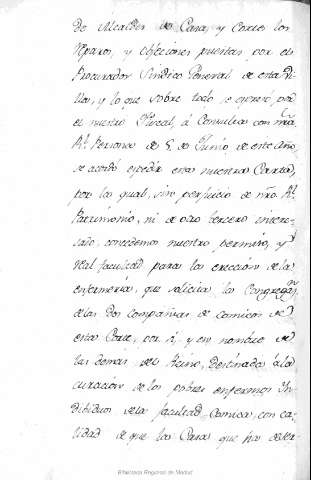 de Alcaldes de Casa, y Corte los
reparos, y objeciones puestas por el
Procurador Sindico General de esta Vi
lla, y lo que sobre todo se expresó por
el nuestro Fiscal, á Consulta con nrã
Rl. Persona de 5 de Junio de este año,
se acordó expedir esta nuestra Carta,
por la qual, sin perjuicio de nro. Rl.
Patrimonio, ni de otro tercero intere-
sado, concedemos nuestro permiso, y
real facultad para la ereccion de la
enfermeria, que solicita la Congregaon.
de las dos compañias de comicos de
esta Corte, por si, y en nombre de
las demas del Reino, destinada á la
curación de los pobres enfermos In
dibiduos de la facultad Comica, con ca-
lidad de que la Casa que ha de ser
Biblioteca Regional de Madrid